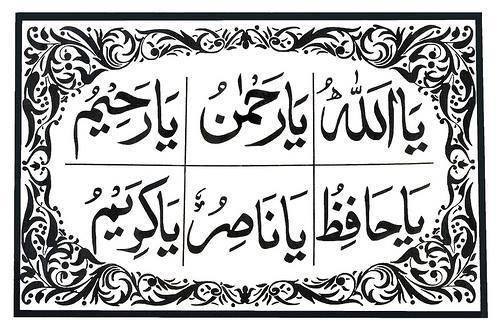 يَا اَللّٰهُ يَارَحْمٰنُ يَارَحِيْمُ
يَاحَافِظُ يَانَاصِرُ يَاكَرِيْمُ